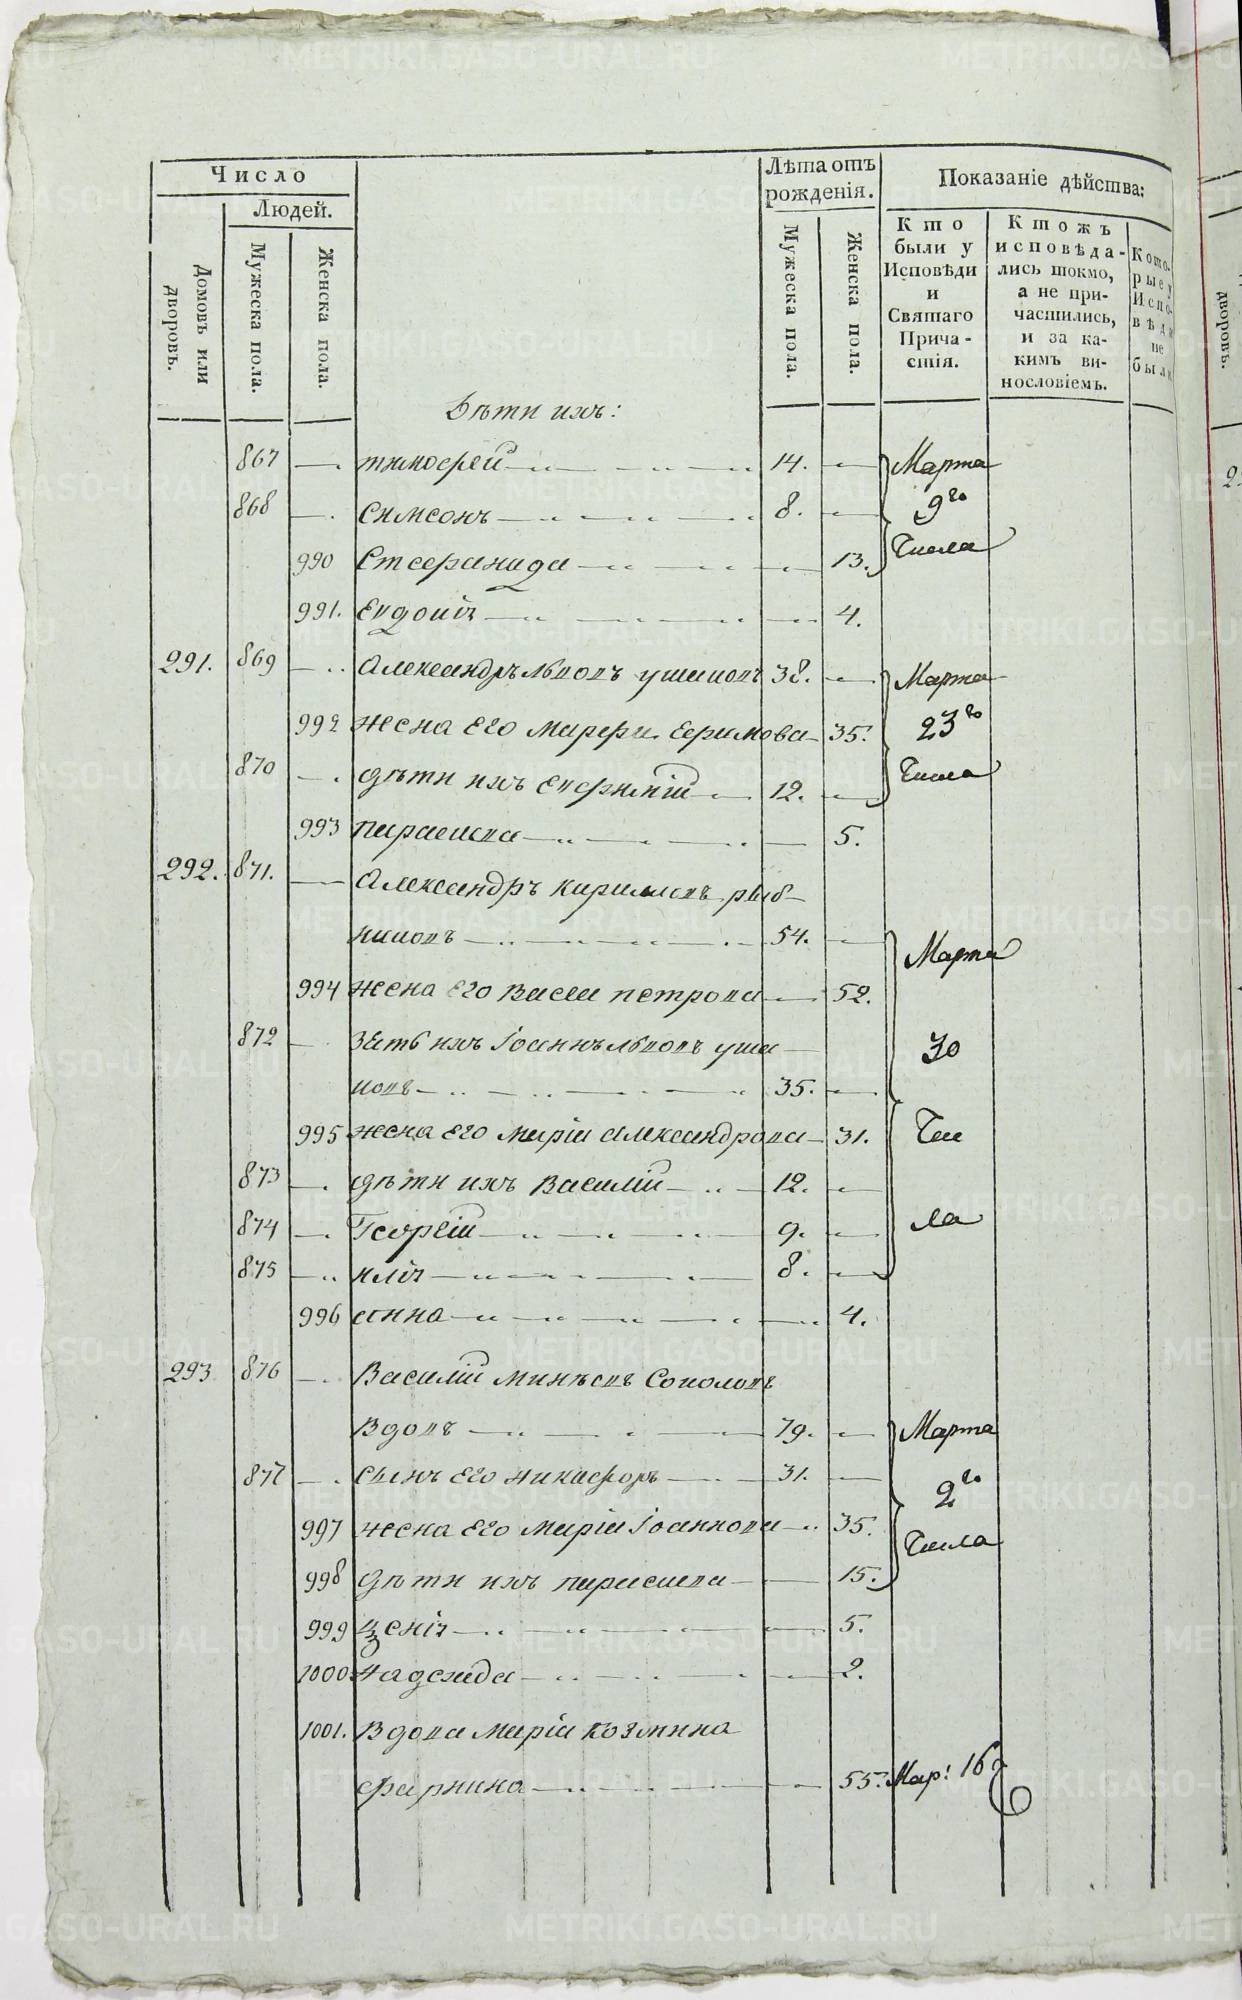 Число
Людей.
Домовъ или дворовъ.
Мужеска пола.
Женска пола.
Лѣта отъ рожденія.
Мужеска пола.
Женска пола.
Показаніе дѣйства:
Кто были у Исповѣди и Святаго Причастія.
Ктожъ исповѣдались токмо, а не причастились, и за какимъ винословіемъ.
Которые у Исповѣди не были
дворовъ.
Дѣти ихъ:
867 тимофей 14. Марта
868 симеонъ 8. 9го
990 Стефанида 13. Числа
991. Евдокія 4.
291. 869 александръ львовъ ушаковъ 38. Марта
992 жена его марфа ефимова 35. 23го
870 дѣти ихъ евфимій 12. Числа
993 параскева 5.
292. 871. александръ кириловъ рыб-
никовъ 54. Марта
994 жена его васса петрова 52.
872 зять ихъ іоаннъ львовъ уша 30
ковъ 35.
995 жена его марія александрова 31. Чис
873 дѣти ихъ василій 12.
874 Георгій 9. ла
875 илія 8.
996 анна 4.
293 876 Василій минѣевъ Соколовъ
вдовъ 79. Марта
877 сынъ его никифоръ 31. 2го
997 жена его марія іоаннова 35. Числа
998 дѣти ихъ параскева 15.
999 ксенія 5.
1000 надежда 2.
1001. Вдова марія козмина
фарнина 55. Мар: 16
METRIKI.GASO-URAL.RU